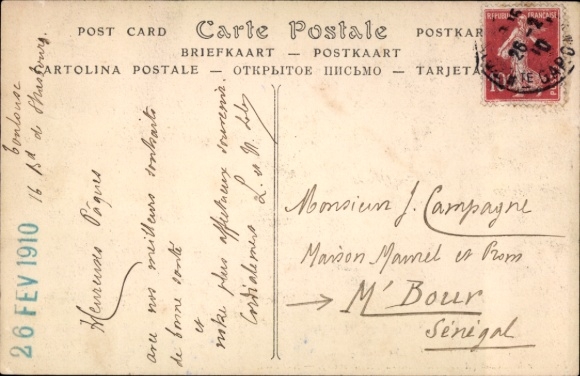 POST CARD Carte Postale POSTKAR
BRIEFKAART — POSTKAART
CARTOLINA POSTALE — ОТКРЫТОЕ ПИСЬМО — TARJETA
REPUBLIQUE FRANÇAISE
26 - 2
10
GARE
Toulouse
16 Bd de Strasbourg.
26 FEV 1910
Heureuses Pâques
avec nos meilleurs souhaits
de bonne santé
et
notre plus affectueux souvenir.
Cordialement L. et M.
Monsieur J. Campagne
Maison Maurel et Prom
M' Bour
Sénégal